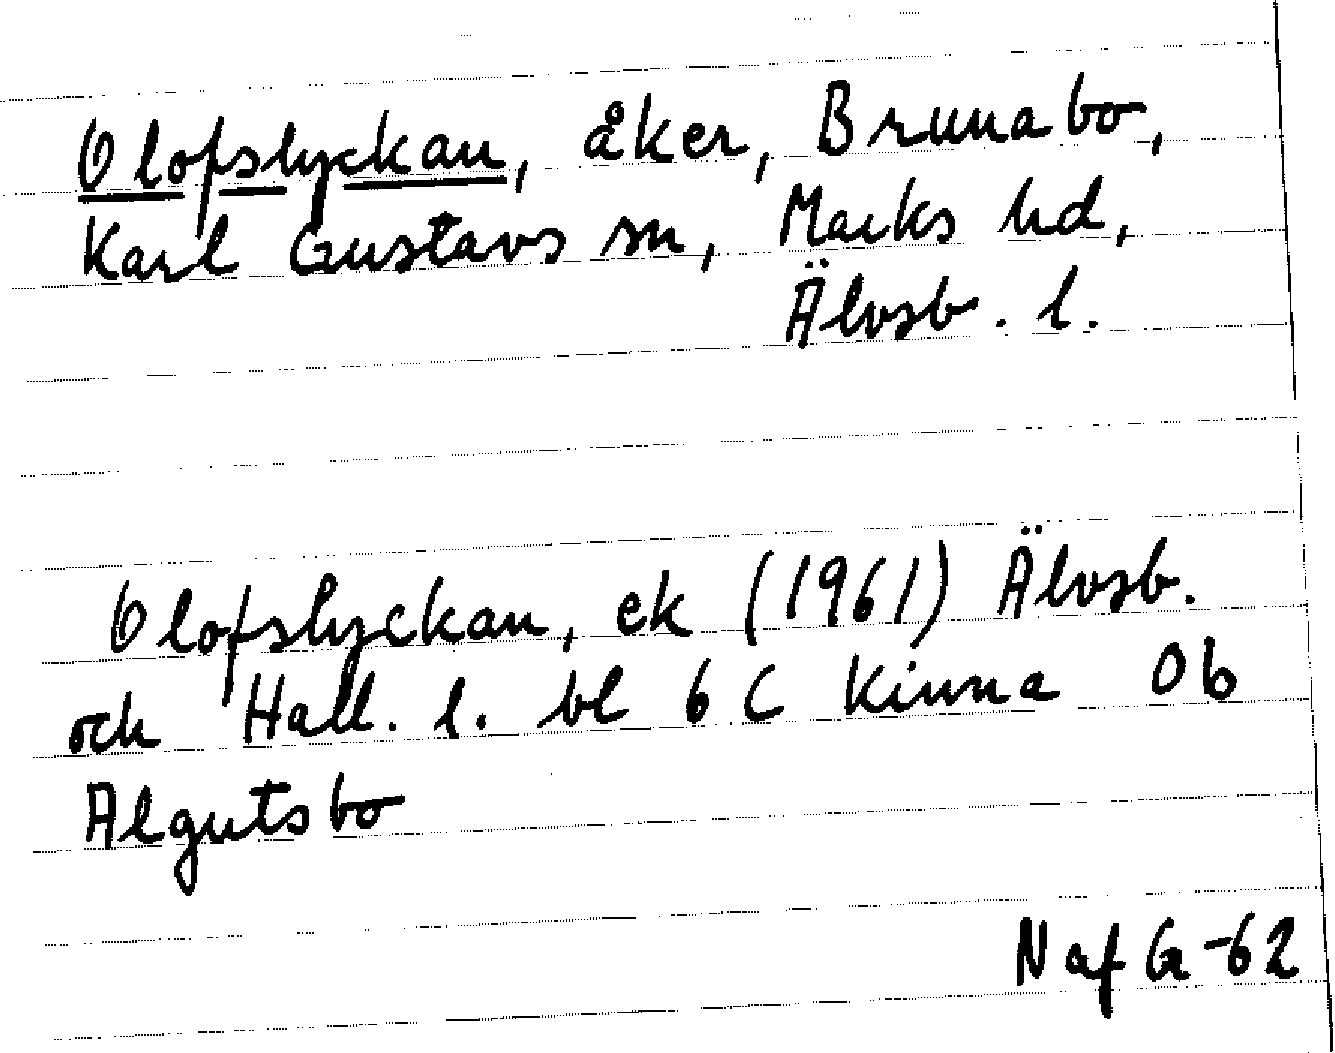 Olofslyckan, åker, Brunabo,
Karl Gustavs sn, Marks hd,
Älvsb. l.
Olofslyckan, ek (1961) Älvsb.
och Hall. l. bl 6 C Kinna Ob
Algutsbo
N af G-62